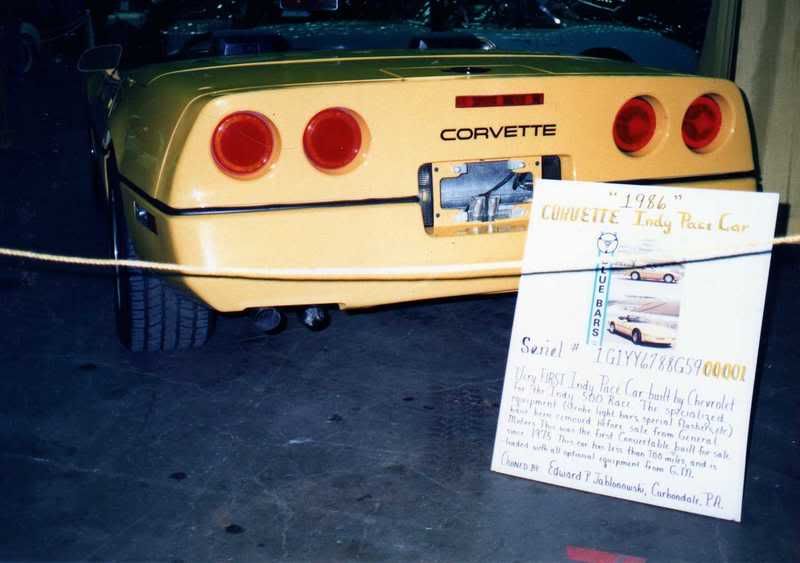 CORVETTE
"1986"
CORVETTE Indy Pace Car
BLUE BARS
Serial # 1G1YY6788G5900001
Very FIRST Indy Pace Car built by Chevrolet
for the Indy 500 Race. The specialized
equipment (strobe light bars, special flashers, etc)
have been removed before sale from General
Motors. This was the First Convertable built for sale
since 1975. This car has less than 700 miles, and is
loaded with all optional equipment from G.M.
OWNED BY: Edward P. Jablonowski, Carbondale, P.A.